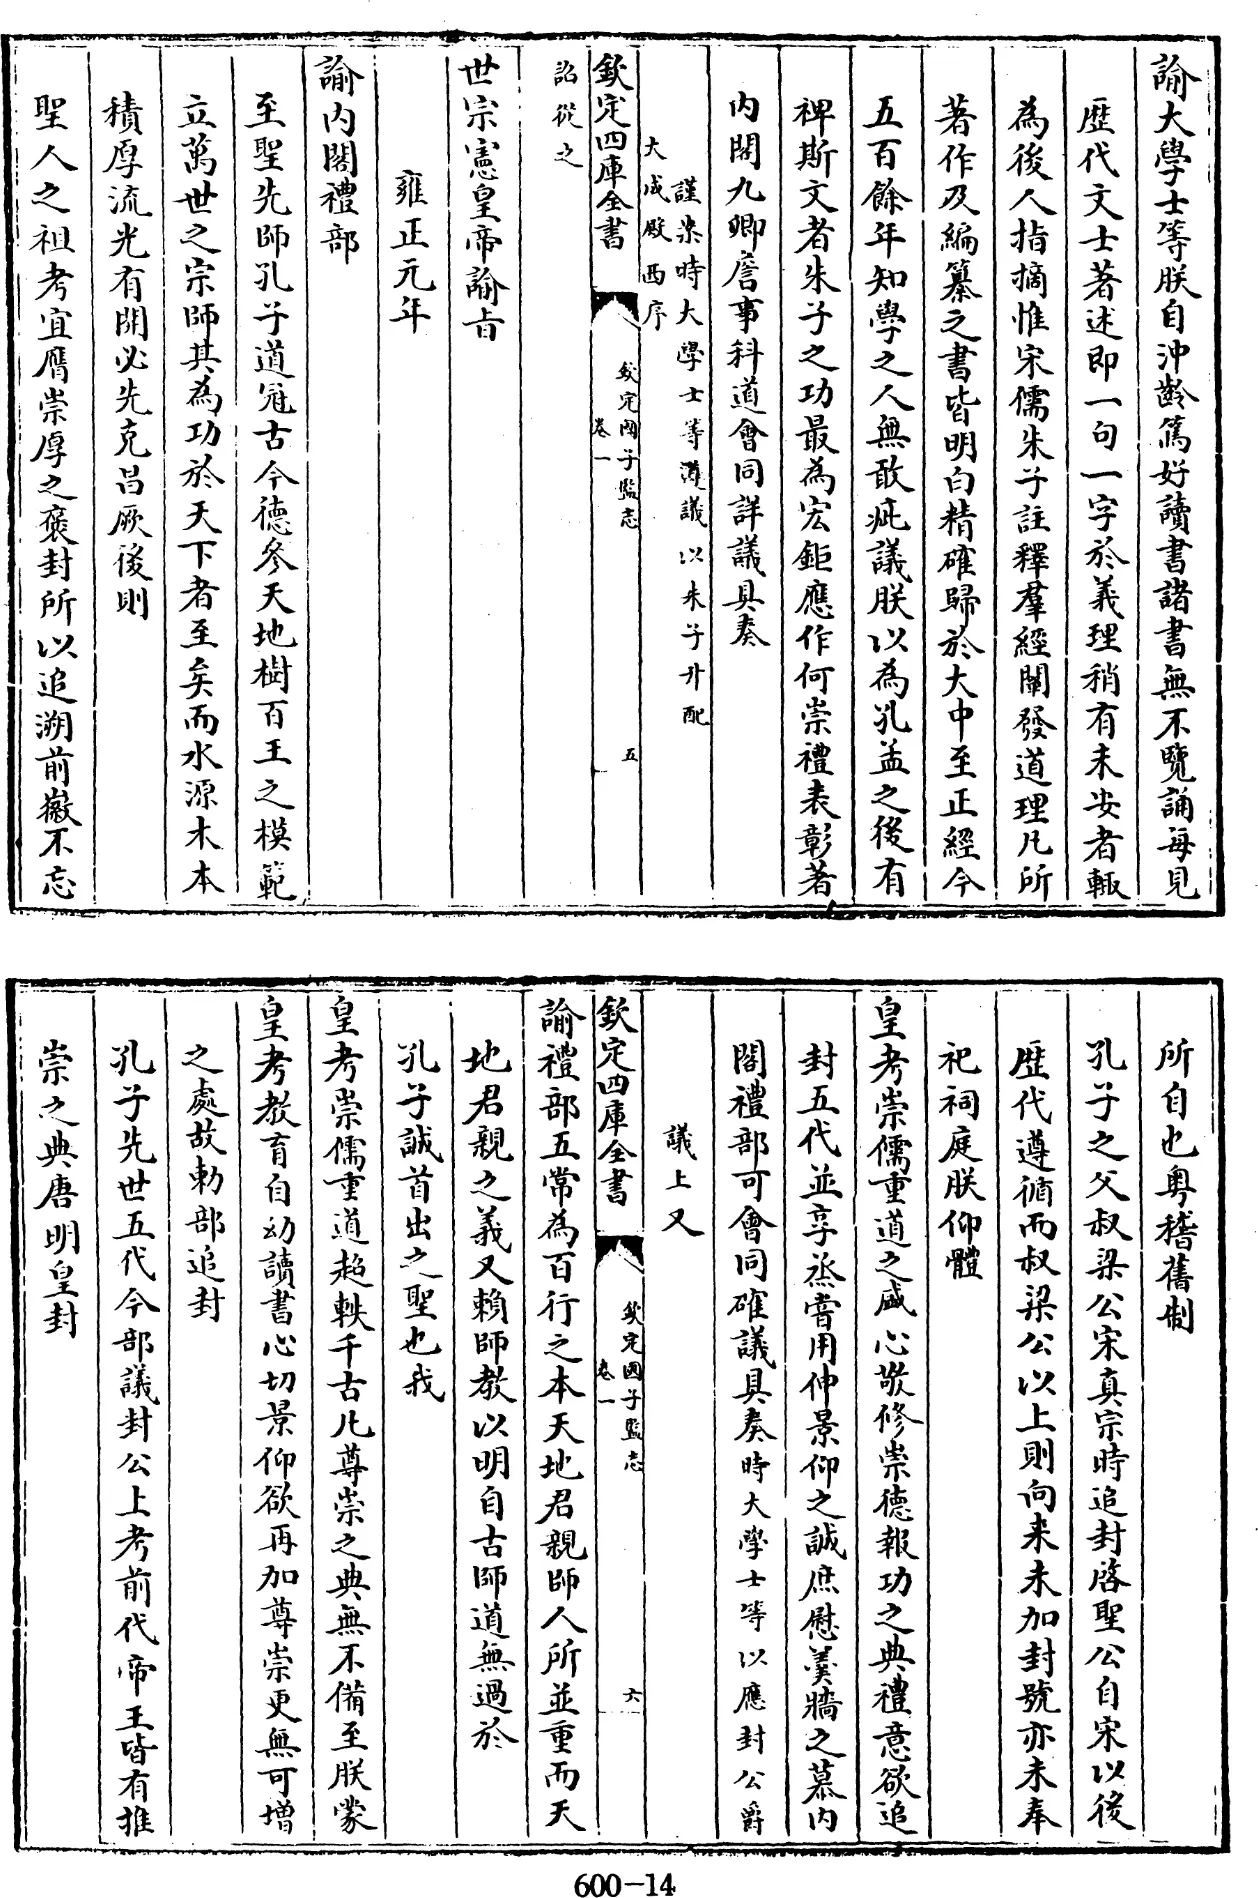 諭大學士等朕自沖齡篤好讀書諸書無不覽誦每見
歴代文士著述即一句一字於義理稍有未安者輒
為後人指摘惟宋儒朱子註釋羣經闡發道理凡所
著作及編纂之書皆明白精確歸於大中至正經今
五百餘年知學之人無敢疵議朕以為孔孟之後有
裨斯文者朱子之功最為宏鉅應作何崇禮表彰著
内閣九卿詹事科道會同詳議具奏
謹案時大學士等遵議以朱子升配
大成殿西序
欽定四庫全書
欽定國子監志
卷一
五
詔從之
世宗憲皇帝諭旨
雍正元年
諭内閣禮部
至聖先師孔子道冠古今德參天地樹百王之模範
立萬世之宗師其為功於天下者至矣而水源木本
積厚流光有開必先克昌厥後則
聖人之祖考宜膺崇厚之褒封所以追溯前徽不忘
所自也粤稽舊制
孔子之父叔梁公宋真宗時追封啓聖公自宋以後
歴代遵循而叔梁公以上則向来未加封號亦未奉
祀祠庭朕仰體
皇考崇儒重道之盛心敬修崇德報功之典禮意欲追
封五代並享烝嘗用伸景仰之誠庶慰羮牆之慕内
閣禮部可會同確議具奏時大學士等以應封公爵
議上又
欽定四庫全書
欽定國子監志
卷一
六
諭禮部五常為百行之本天地君親師人所並重而天
地君親之義又賴師教以明自古師道無過於
孔子誠首出之聖也我
皇考崇儒重道超軼千古凡尊崇之典無不備至朕蒙
皇考教育自幼讀書心切景仰欲再加尊崇更無可增
之處故勅部追封
孔子先世五代今部議封公上考前代帝王皆有推
崇之典唐明皇封
600-14